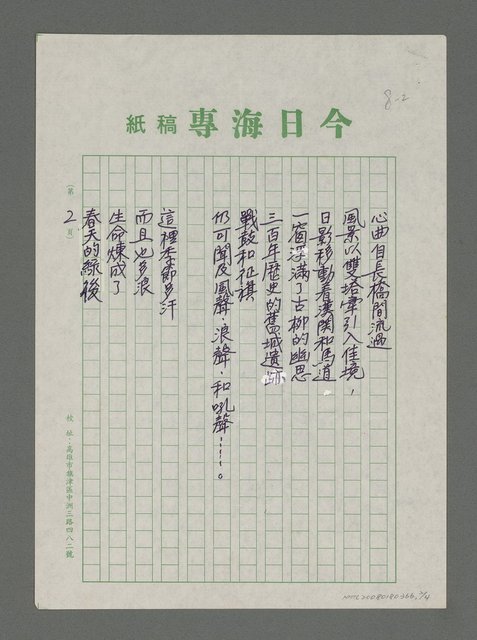 8-2
今日海專稿紙
心曲自長橋間流過
風景以雙塔牽引入佳境，
日影移動看漢關和馬道
一窗深滿了古柳的幽思
三百年歷史的舊城遺跡
戰鼓和征旗
仍可聞及風聲、浪聲、和吼聲……。
這裡季節多汗
而且也多浪
生命煉成了
春天的綠後
（第2頁）
校址：高雄市旗津區中洲三路四八二號
NMTL20080180366, 2/4